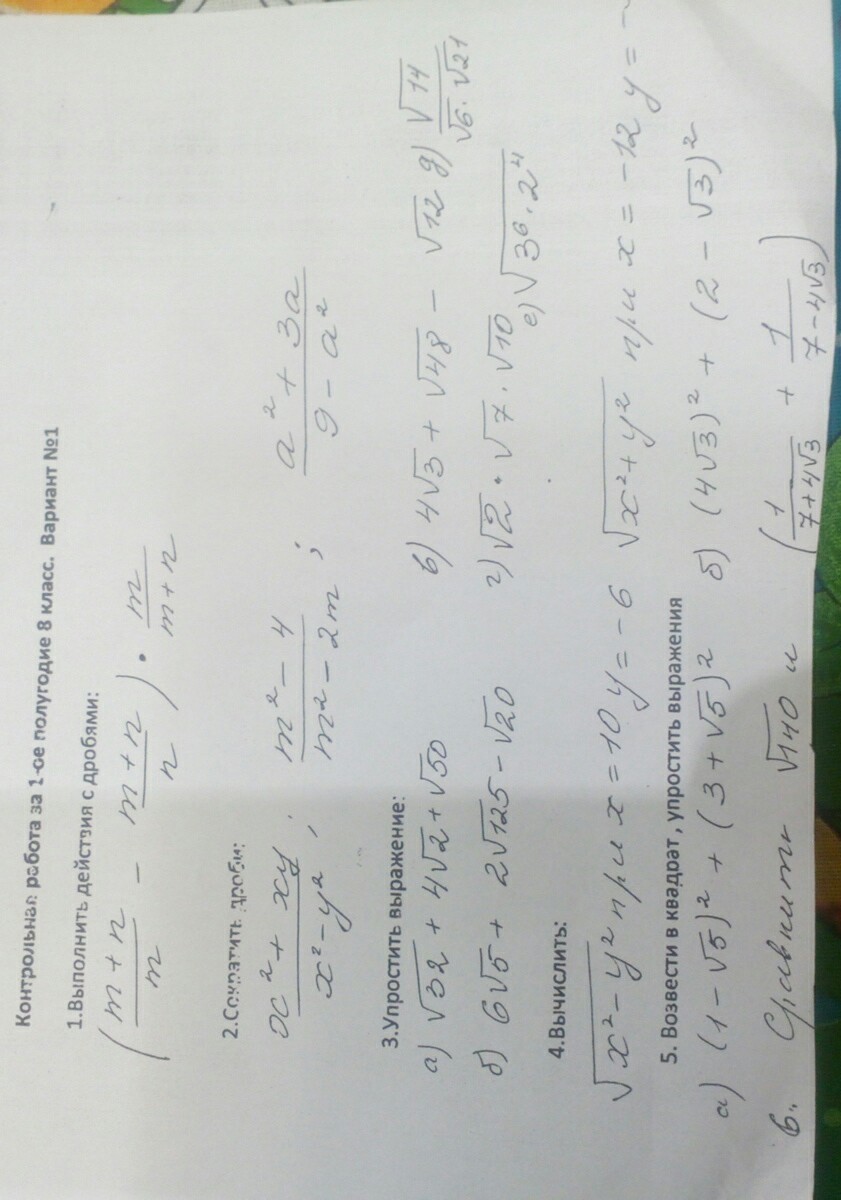 Контрольная работа за 1-ое полугодие 8 класс. Вариант №1
1.Выполнить действия с дробями:
((m+n)/m - (m+n)/n) · m/(m+n)
2.Сократить дроби:
(x²+xy)/(x²-y²) ; (m²-4)/(m²-2m) ; (a²+3a)/(9-a²)
3.Упростить выражение:
а) √32 + 4√2 + √50 в) 4√3 + √48 - √12 д) √14/(√6·√21)
б) 6√5 + 2√125 - √20 г) √2 · √7 · √10 е) √(3⁶·2⁴)
4.Вычислить:
√(x²-y²) при x=10 y=-6 √(x²+y²) при x=-12 y=-
5. Возвести в квадрат, упростить выражения
а) (1-√5)² + (3+√5)² б) (4√3)² + (2-√3)²
6. Сравнить √140 и (1/(7+4√3) + 1/(7-4√3))